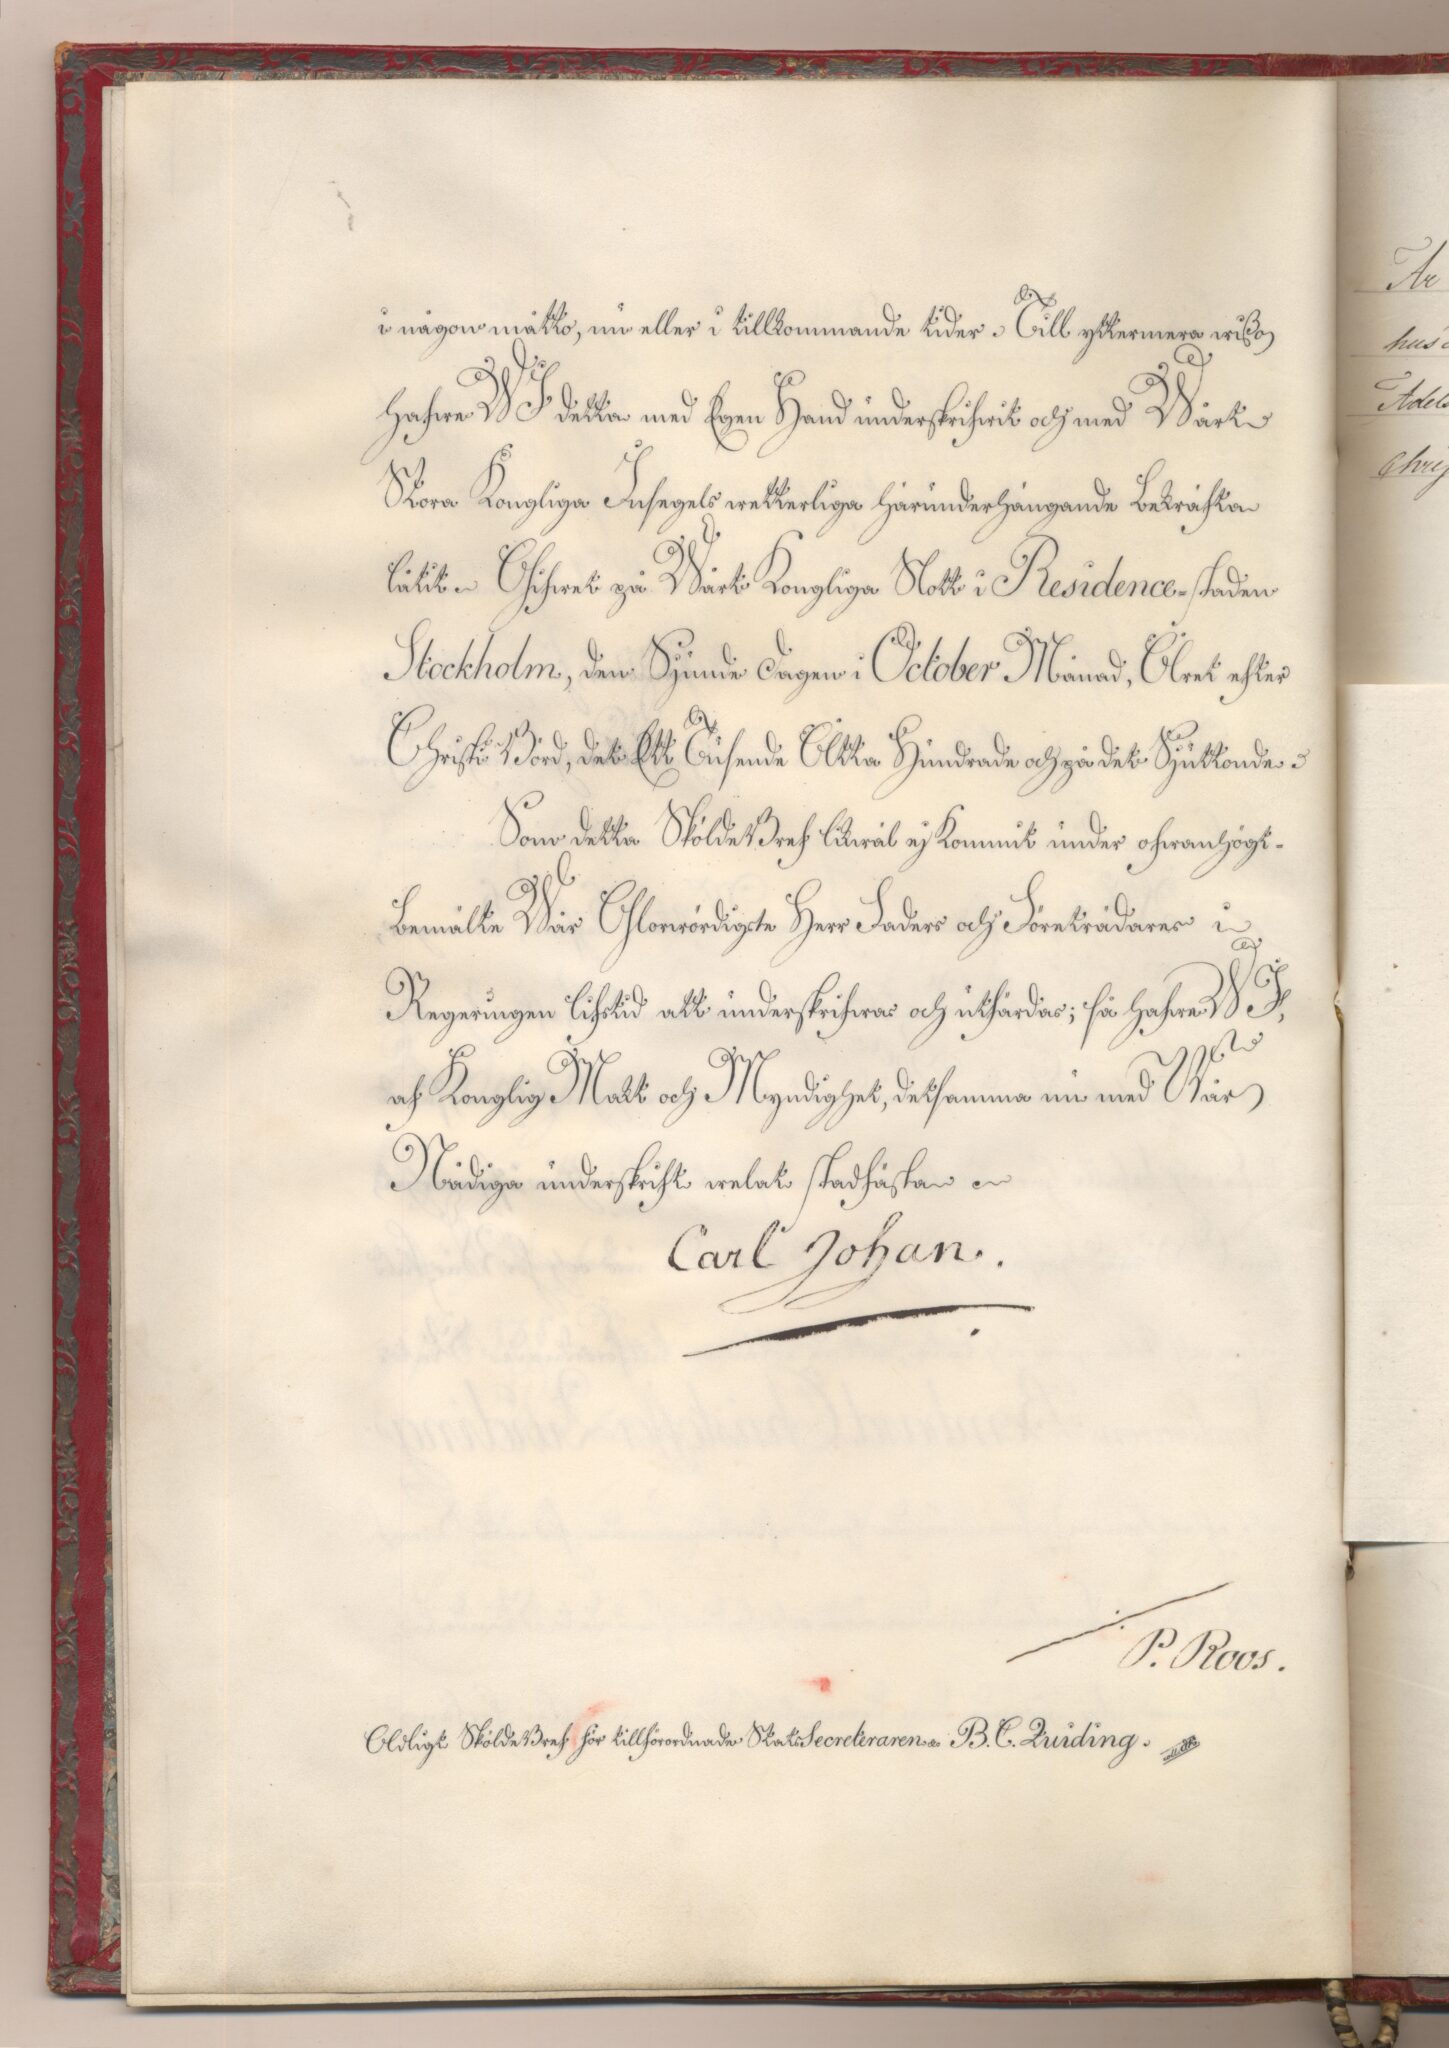 i någon måtto, nu eller i tillkommande tider. Till yttermera wisso
hafwe WJ detta med Egen Hand underskrifwit och med Wårt
Stora Kongliga Insegels wetterliga härunderhängande Bekräfta
låtit. Gifwet på Wårt Kongliga Slott i Residence-staden
Stockholm, den Sjunde dagen i October Månad, Året efter
Christi Börd, det Ett Tusende Åtta Hundrade och på det Sjuttonde.
Som detta Sköldebref likwäl ej kommit under ofwanhögt-
bemälte Wår Glorwördigste Herr Faders och Företrädares i
Regeringen lifstid att underskrifwas och utfärdas; så hafwe WJ,
af Konglig Makt och Myndighet, detsamma nu med Wår
Nådiga underskrift welat stadfästa
Carl Johan.
P. Roos.
Adligt Sköldebref för tillförordnade StatsSecreteraren B. C. Quiding.
Ar
hus
Adels